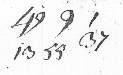 49 9 1
13 55 37